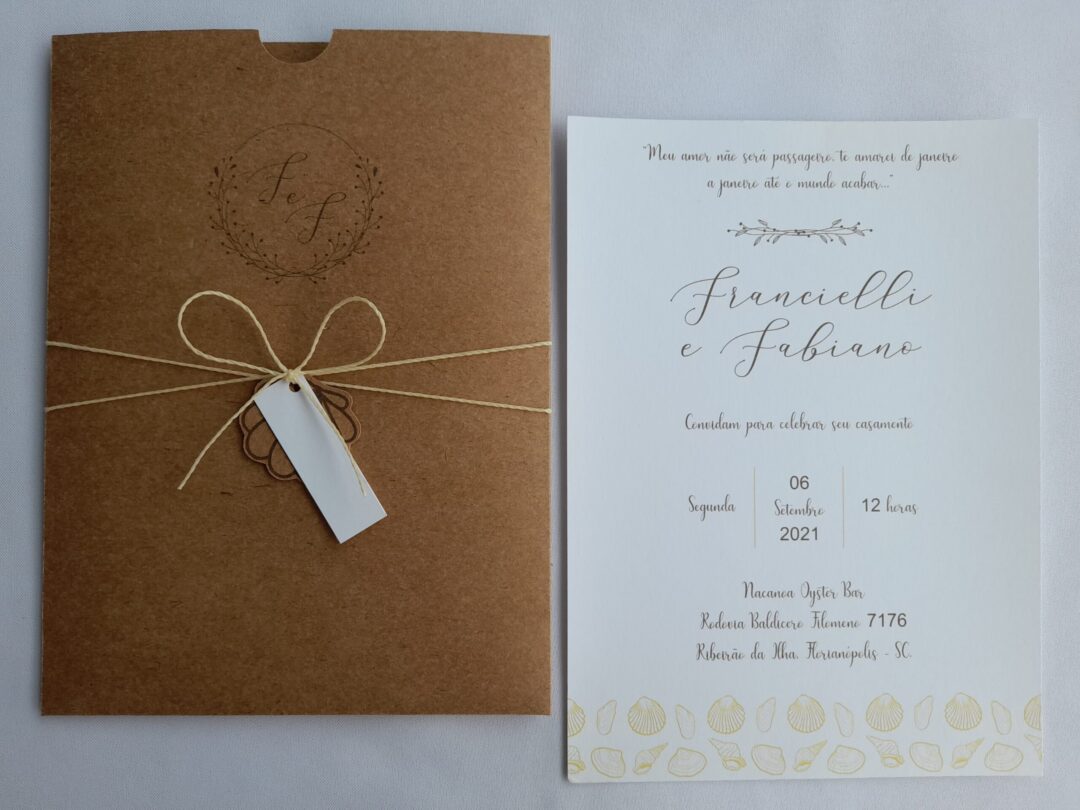 F e F
"Meu amor não será passageiro, te amarei de janeiro
a janeiro até o mundo acabar..."
Francielli
e Fabiano
Convidam para celebrar seu casamento
Segunda
06
Setembro
2021
12 horas
Nacanoa Oyster Bar
Rodovia Baldicero Filomeno 7176
Ribeirão da Ilha, Florianópolis - SC.